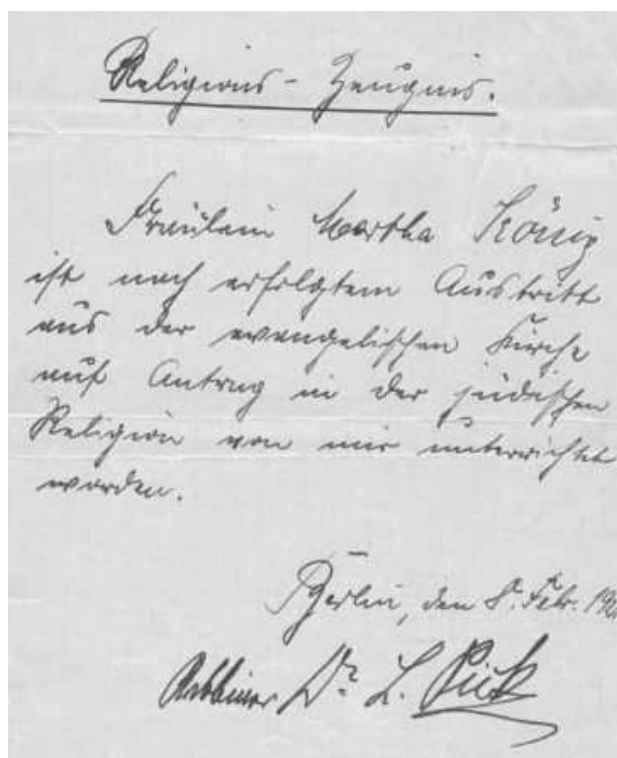 Religions-Zeugnis.
Fräulein Martha König
ist nach erfolgtem Austritt
aus der evangelischen Kirche
auf Antrag in der jüdischen
Religion von mir unterrichtet
worden.
Berlin, den 8. Febr.
Rabbiner Dr. L. Pick